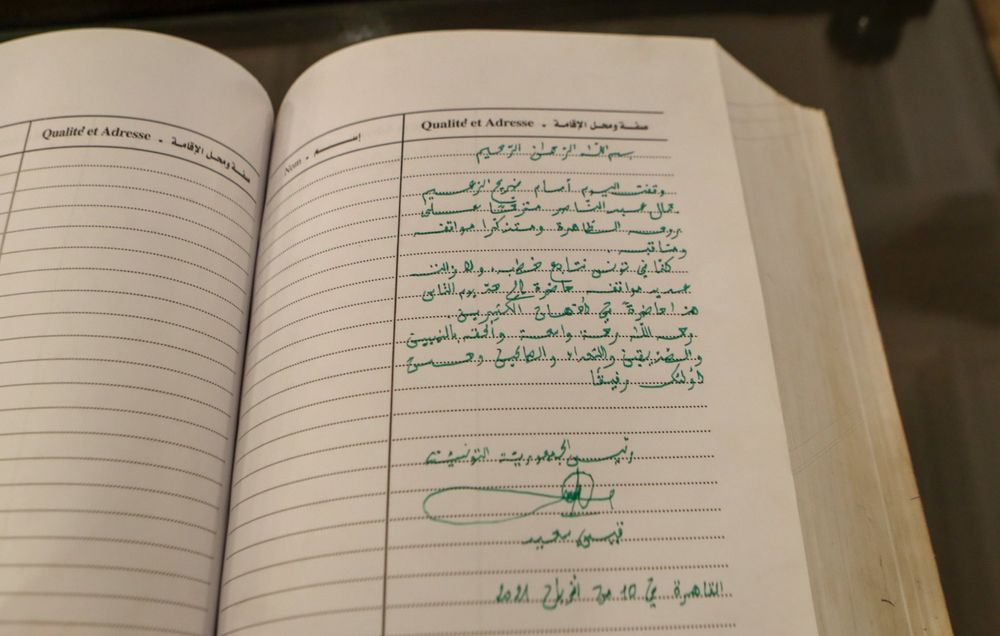 Qualité et Adresse - صفة ومحل الإقامة
Nom - إسم
Qualité et Adresse - صفة ومحل الإقامة
بسم الله الرحمان الرحيم
وقفت اليوم أمام ضريح الزعيم
جمال عبد الناصر مترحّما على
روحه الطاهرة ومتذكرا مواقفه
ومناقبه.
كنا في تونس نتابع خطبه. ولا زالت
عديد مواقفه حاضرة إلى حدّ يوم الناس
هذا حاضرة في أذهان الكثيرين.
رحمه الله رحمة واسعة وألحقه بالنبيين
والصدّيقين والشهداء والصالحين وحسن
أولئك رفيقا
رئيس الجمهورية التونسية
قيس سعيد
القاهرة في 10 من أفريل 2021